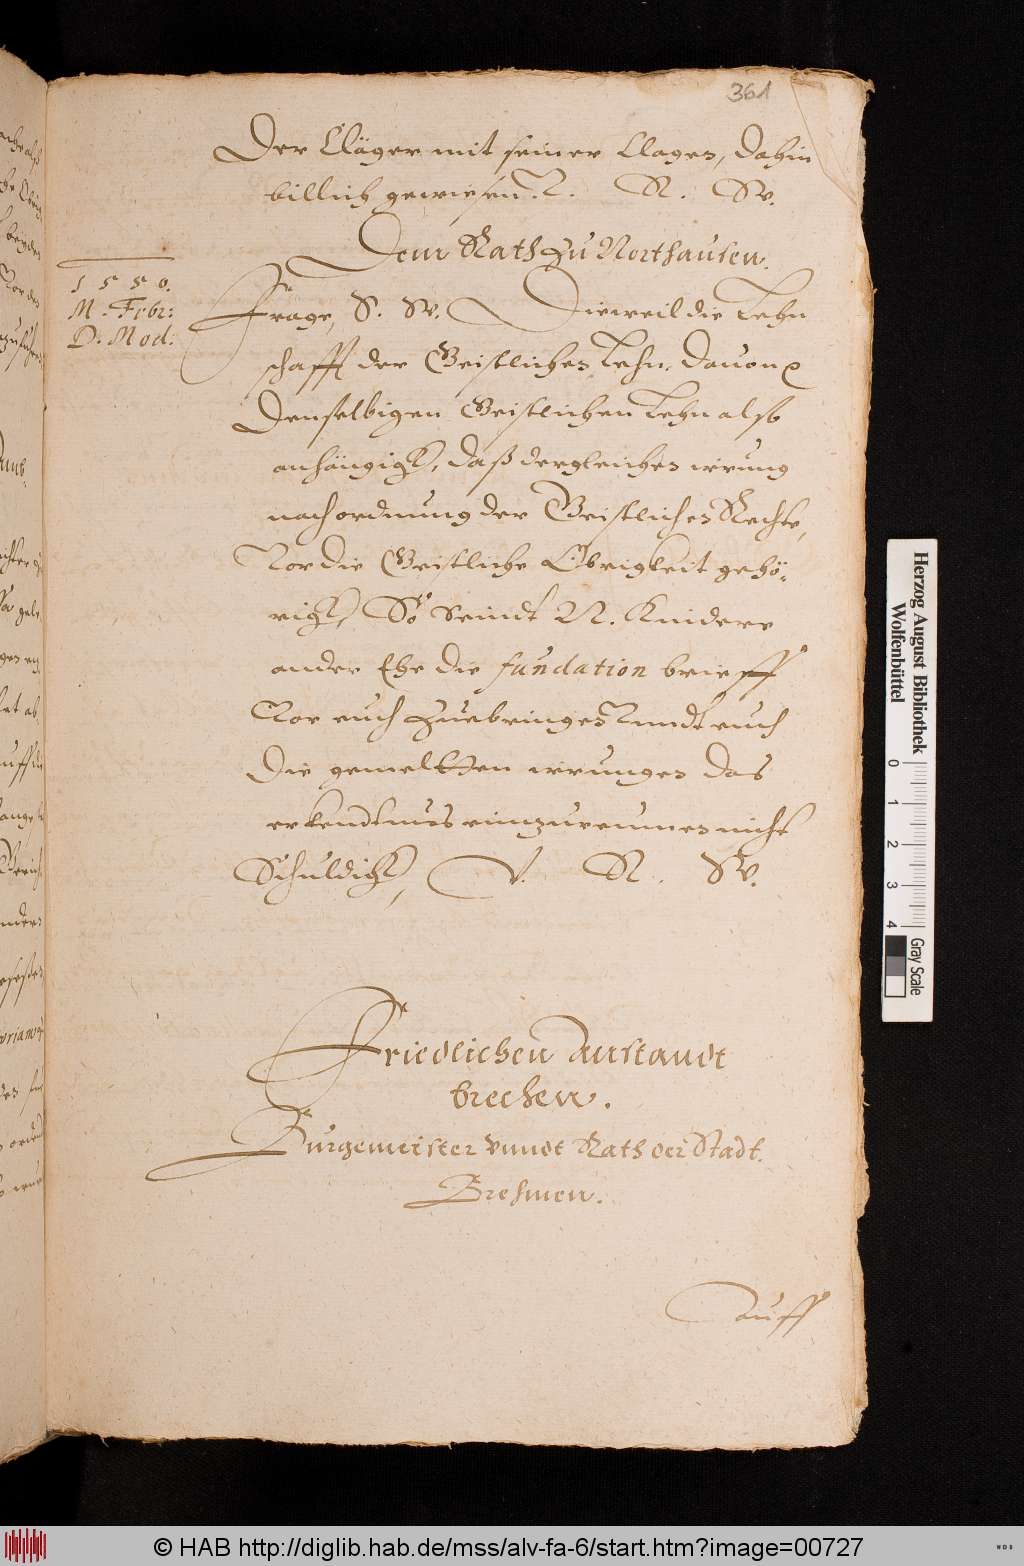 361
Der Cläger mit seiner Clagen, dahin
billich gewiesen. V. R. W.
Dem Rath zu Northausen.
1550.
M. Febr:
D. Mod:
Frage, S. W. Dieweil die Lehn
schafft der Geistlichen Lehn, dauon
denselbigen Geistlichen Lehn also
anhängigk, daß dergleichen irrung
nach ordnung der Geistlichen Rechte,
Vor die Geistliche Obrigkeit gehö-
rigk, So seindt N. Kindere
ander Ehe die fundation brieff
Vor euch zuebringen Vnndt euch
die gemeltten irrungen das
erkendtnus einzureumen nicht
Schuldigk, V. R. W.
Friedlichen Anstandt
brechen.
Burgemeister vnndt Rath der Stadt
Brehmen.
Auff
Herzog August Bibliothek
Wolfenbüttel
0 1 2 3 4
Gray Scale
© HAB http://diglib.hab.de/mss/alv-fa-6/start.htm?image=00727